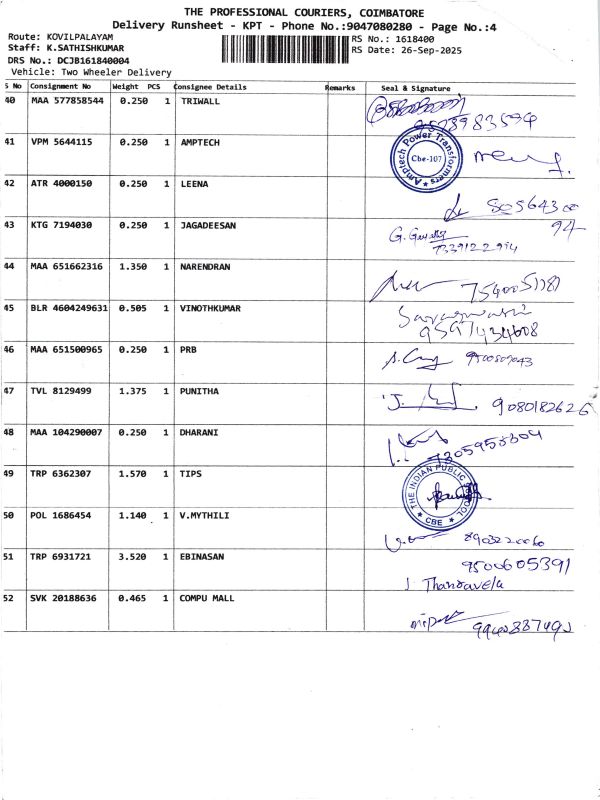 THE PROFESSIONAL COURIERS, COIMBATORE
Delivery Runsheet - KPT - Phone No.:9047080280 - Page No.:4
Route: KOVILPALAYAM
RS No.: 1618400
Staff: K.SATHISHKUMAR
RS Date: 26-Sep-2025
DRS No.: DCJB161840004
Vehicle: Two Wheeler Delivery
S No Consignment No Weight PCS Consignee Details Remarks Seal & Signature
40 MAA 577858544 0.250 1 TRIWALL
9578983594
41 VPM 5644115 0.250 1 AMPTECH
Amptech Power Transformers
Cbe-107
42 ATR 4000150 0.250 1 LEENA
80564300
94
43 KTG 7194030 0.250 1 JAGADEESAN
44 MAA 651662316 1.350 1 NARENDRAN
45 BLR 4604249631 0.505 1 VINOTHKUMAR
Saraswathi
9597434608
46 MAA 651500965 0.250 1 PRB
47 TVL 8129499 1.375 1 PUNITHA
9080182626
48 MAA 104290007 0.250 1 DHARANI
49 TRP 6362307 1.570 1 TIPS
THE INDIAN PUBLIC SCHOOL
CBE
50 POL 1686454 1.140 1 V.MYTHILI
8903220060
51 TRP 6931721 3.520 1 EBINASAN
9500605391
52 SVK 20188636 0.465 1 COMPU MALL